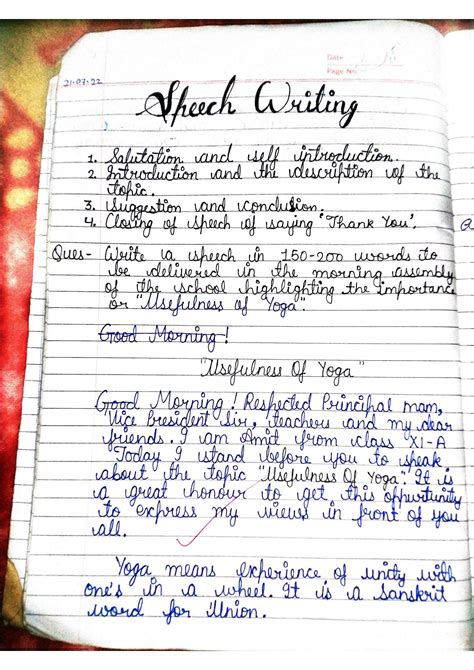 Date
Page No.
21.07.22
Speech Writing
1. Salutation and self introduction.
2. Introduction and the description of the
topic.
3. Suggestion and conclusion.
4. Closing of speech of saying 'Thank You'.
Ques- Write a speech in 150-200 words to
be delivered in the morning assembly
of the school highlighting the importance
or "Usefulness of Yoga".
Good Morning!
"Usefulness Of Yoga"
Good Morning! Respected Principal mam,
Vice President Sir, teachers and my dear
friends. I am Amit from class XI-A
Today I stand before you to speak
about the topic "Usefulness Of Yoga". It is
a great honour to get this oppurtunity
to express my views in front of you
all.
Yoga means experience of unity with
one's in a wheel. It is a Sanskrit
word for Union.